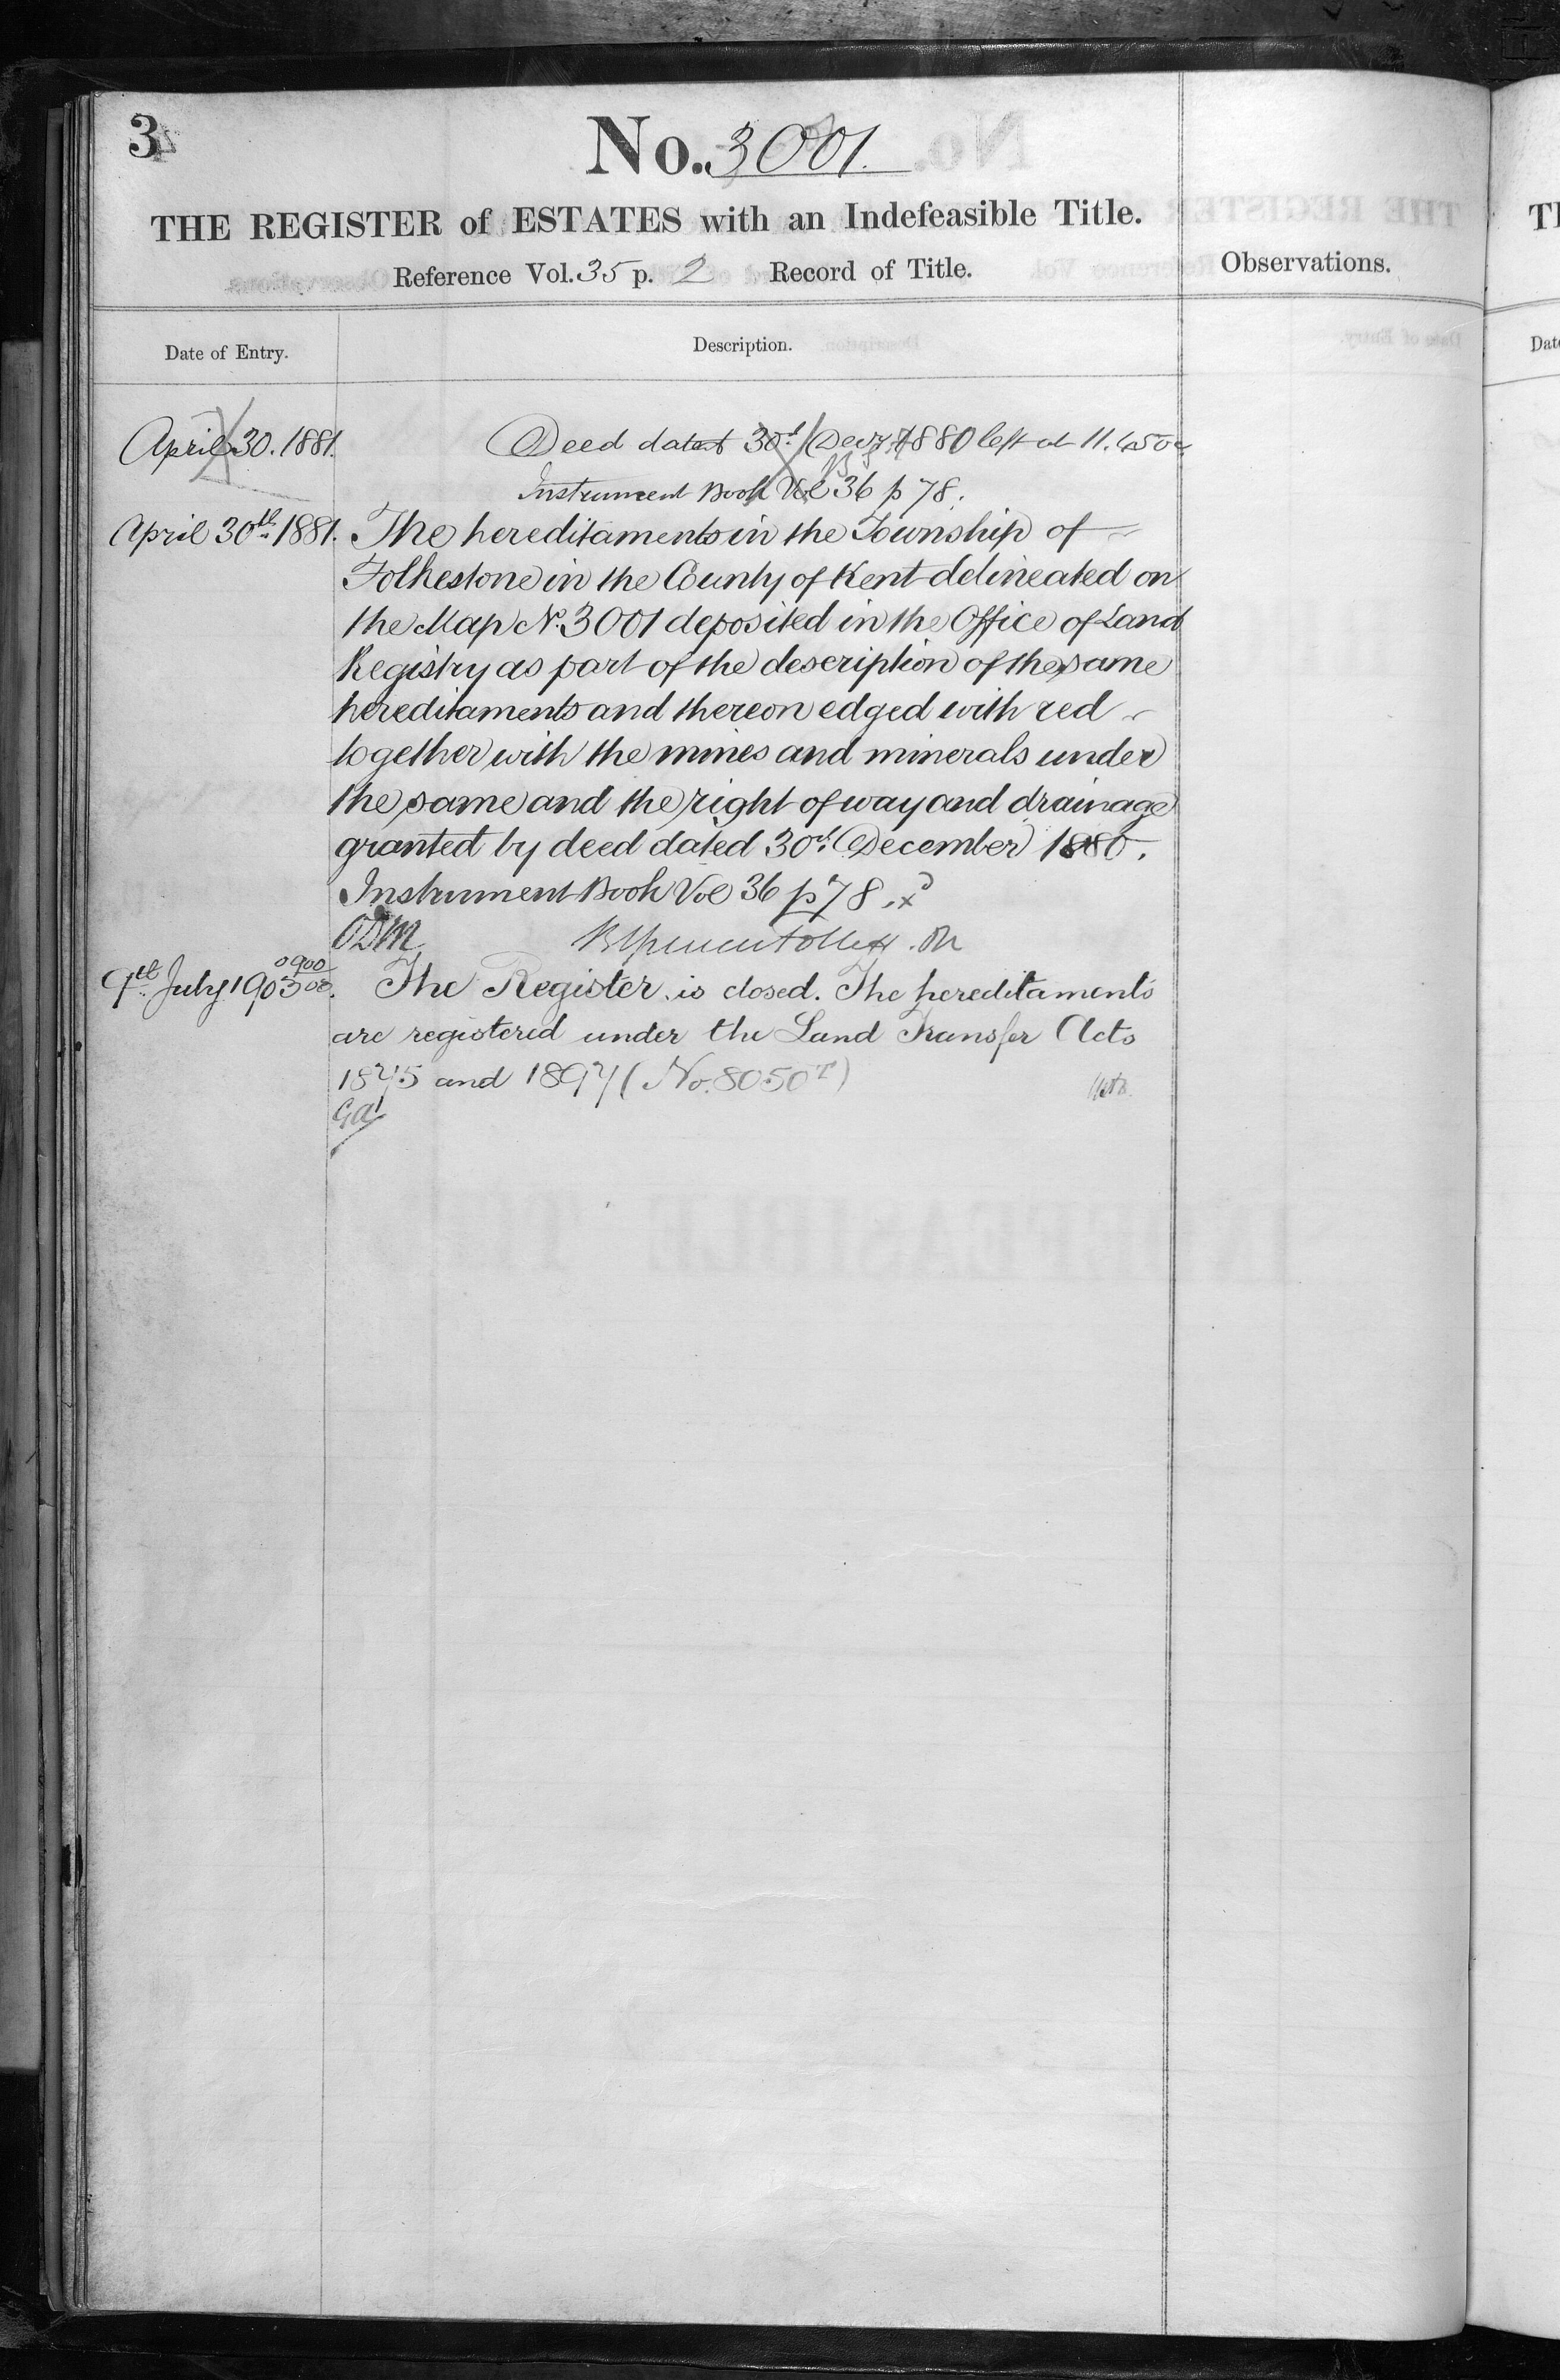 3
No. 3001.
THE REGISTER of ESTATES with an Indefeasible Title.
Reference Vol. 35 p. 2 Record of Title.
Observations.
Date of Entry.
Description.
April 30. 1881.
Deed dated 30th Decr 1880 left at 11.45
Instrument Book Vol 36 p 78.
April 30th 1881.
The hereditaments in the Township of
Folkestone in the County of Kent delineated on
the Map No. 3001 deposited in the Office of Land
Registry as part of the description of the same
hereditaments and thereon edged with red
together with the mines and minerals under
the same and the right of way and drainage
granted by deed dated 30th December 1880.
Instrument Book Vol 36 p 78.
ODM
9th July 1903
The Register is closed. The hereditaments
are registered under the Land Transfer Acts
1875 and 1897 (No. 8050
Ti
Date